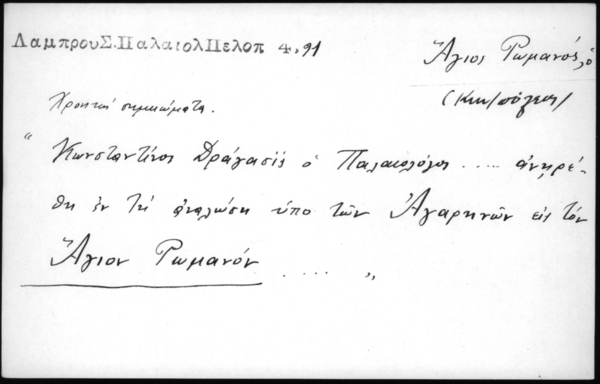 ΛαμπρουΣ.ΠαλαιολΠελοπ 4,91
Ἅγιος Ρωμανός, ὁ
(Κων/πόλεως)
Χρονικά σημειώματα.
“ Κωνσταντῖνος Δράγασις ὁ Παλαιολόγος ..... ἀνηρέ-
θη ἐν τῇ ἁλώσει ὑπό τῶν Ἀγαρηνῶν εἰς τόν
Ἅγιον Ρωμανόν ..... „